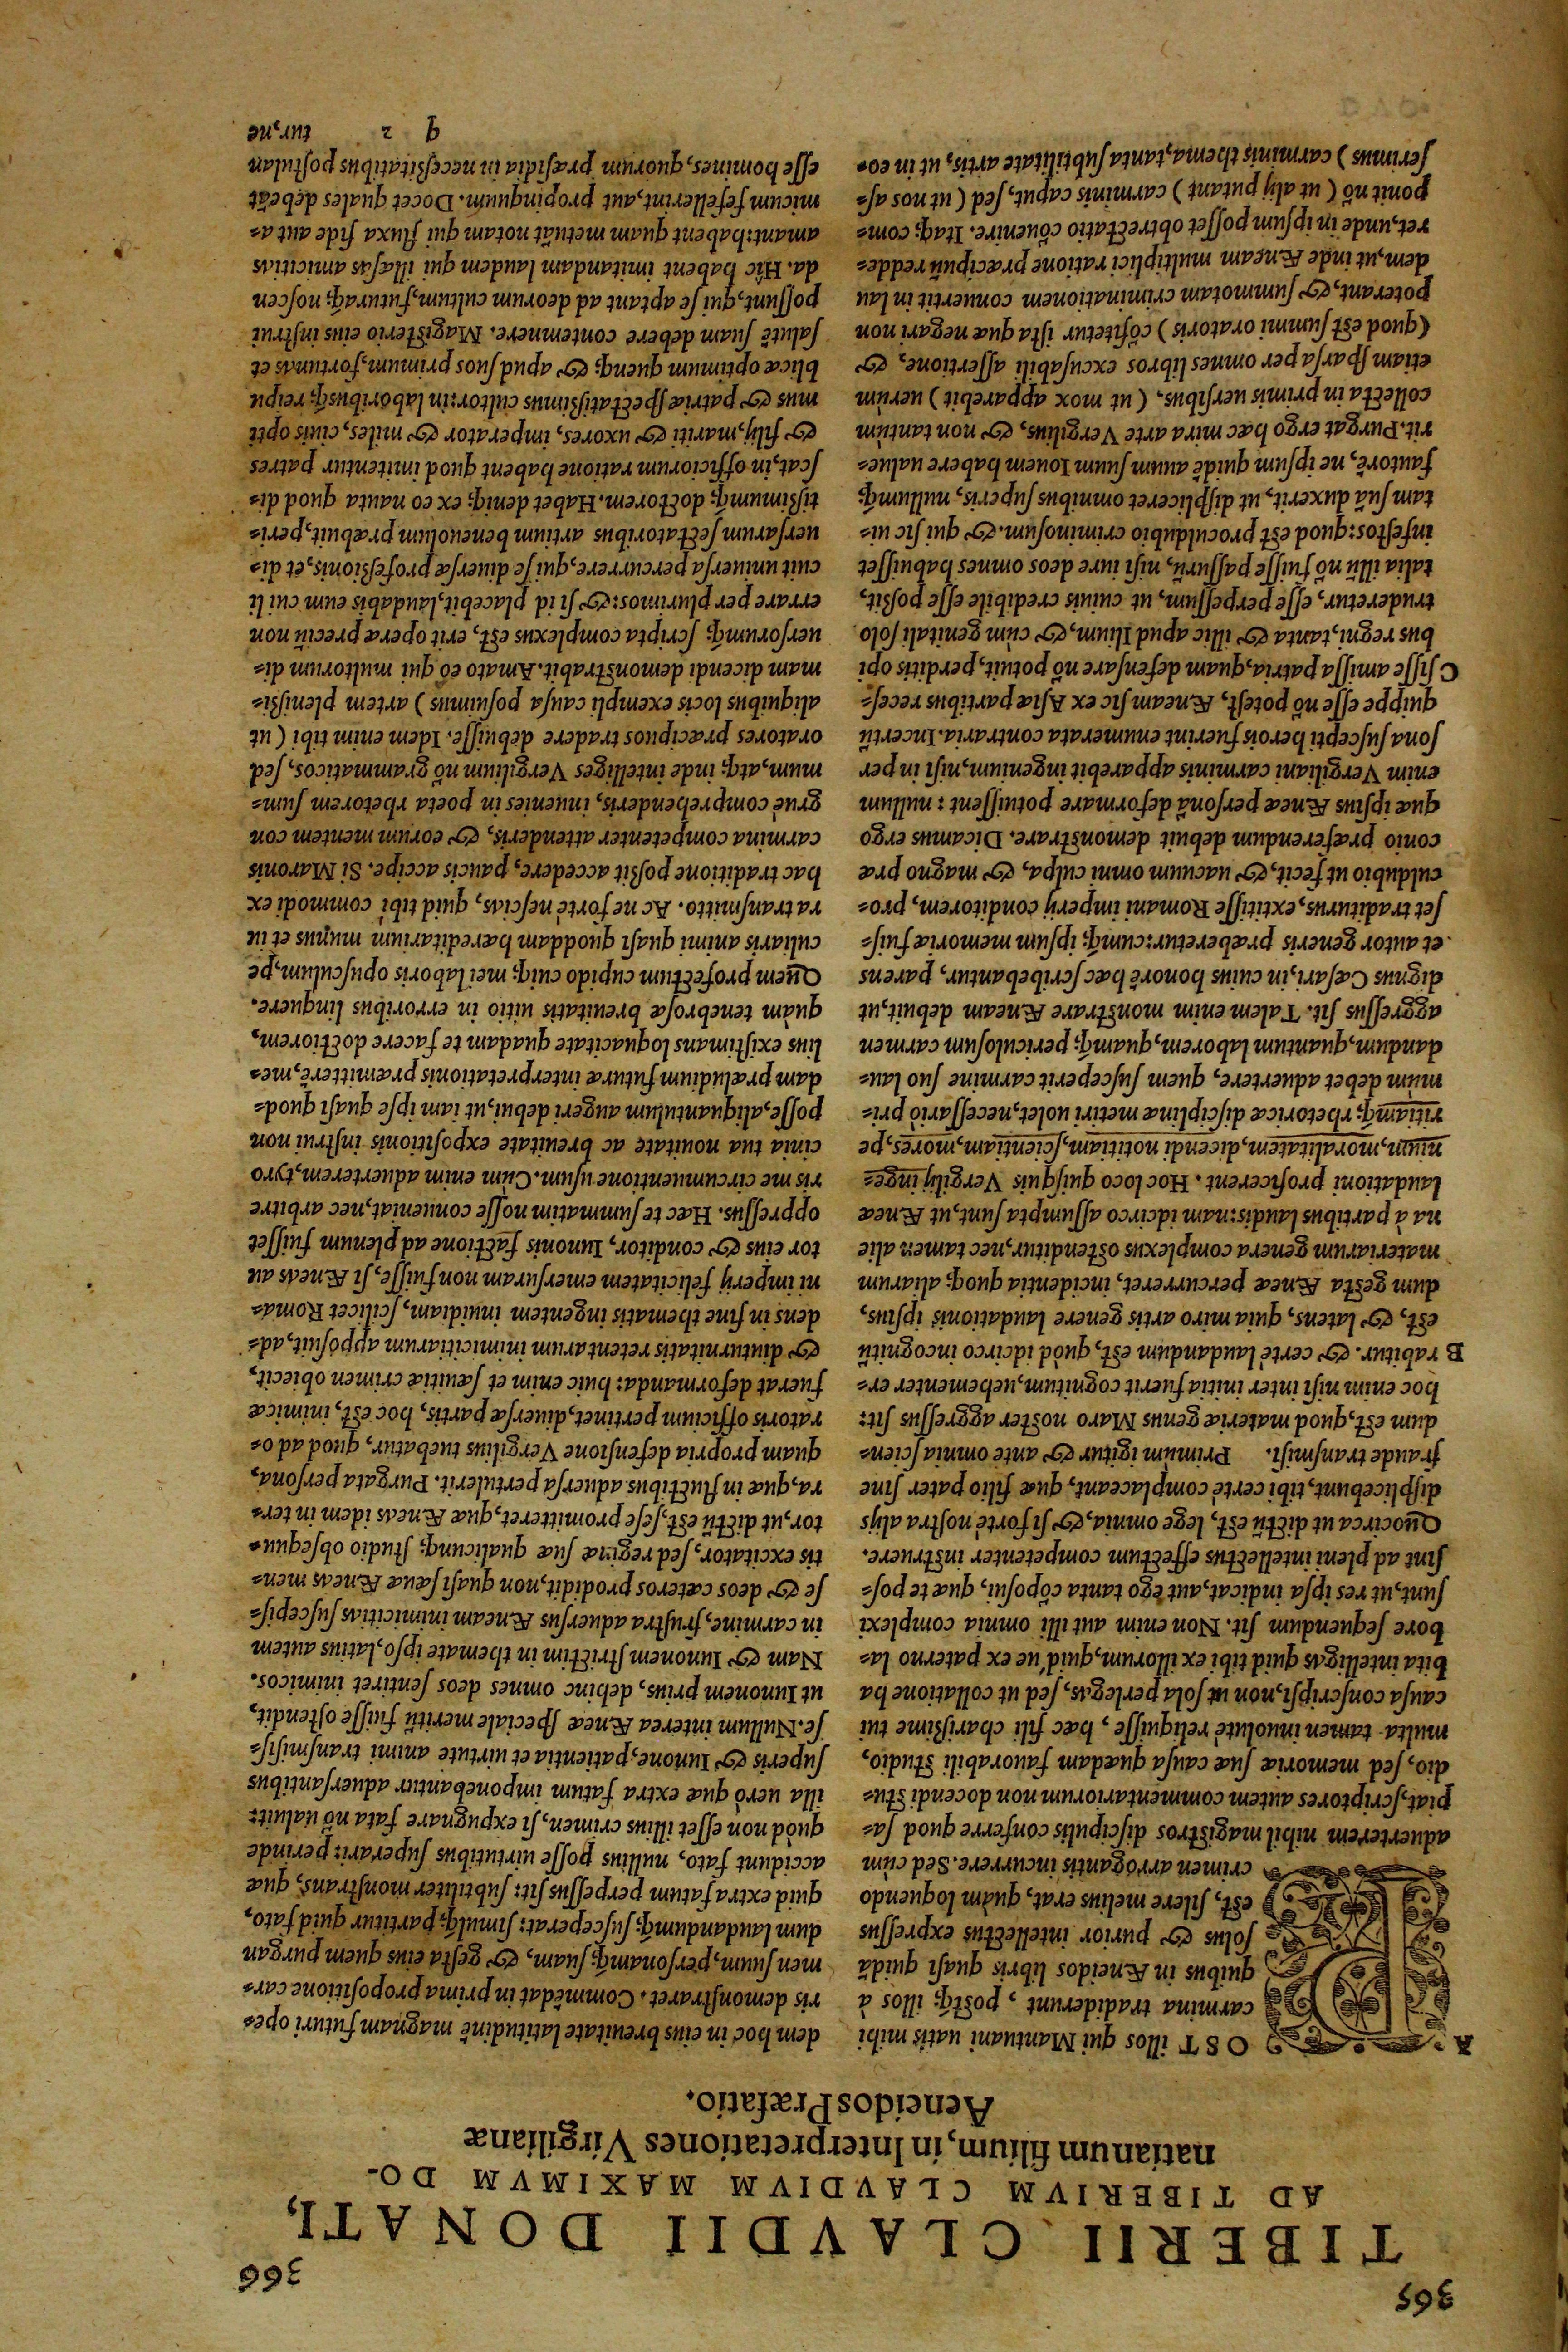 365
366
TIBERII CLAVDII DONATI,
AD TIBERIVM CLAVDIVM MAXIMVM DO-
natianum filium, in Interpretationes Virgilianæ
Aeneidos Præfatio.
A
POST illos qui Mantuani uatis mihi
carmina tradiderunt, poſtq́; illos à
quibus in Æneidos libris quaſi quidã
ſolus & purior intellectus expreſſus
eſt, ſilere melius erat, quàm loquendo
crimen arrogantis incurrere. Sed cùm
aduerterem nihil magiſtros diſcipulis conferre quod ſa-
piat, ſcriptores autem commentariorum non docendi ſtu-
dio, ſed memoriæ ſuæ cauſa quædam fauorabili ſtudio,
multa tamen inuoluta reliquiſſe, hæc fili chariſſime tui
cauſa conſcripſi, non ut ſola perlegas, ſed ut collatione ha
bita intelligas quid tibi ex illorum, quid'ue ex paterno la-
bore ſequendum ſit. Non enim aut illi omnia complexi
ſunt, ut res ipſa indicat, aut ego tanta cōpoſui, quæ te poſ-
ſint ad pleni intellectus effectum competenter inſtruere.
Quocirca ut dictū eſt, lege omnia, & ſi fortè noſtra alijs
diſplicebunt, tibi certè complaceant, quæ filio pater ſine
fraude tranſmiſi. Primùm igitur & ante omnia ſcien-
dum eſt, quod materiæ genus Maro noſter aggreſſus ſit:
hoc enim niſi inter initia fuerit cognitum, uehementer er-
B rabitur. & certè laudandum eſt, quòd idcirco incognitū
eſt, & latens, quia miro artis genere laudationis ipſius,
dum geſta Æneæ percurreret, incidentia quoq; aliarum
materiarum genera complexus oſtenditur, nec tamen alie
na à partibus laudis: nam idcirco aſſumpta ſunt, ut Æneæ
laudationi proficerent. Hoc loco quiſquis Vergilij inge-
nium, moralitatem, dicendi notitiam, ſcientiam, mores, pe
ritiamq́; rhetoricæ diſciplinæ metiri uolet, neceſſariò pri-
mùm debet aduertere, quem ſuſceperit carmine ſuo lau-
dandum, quantum laborem, quamq́; periculoſum carmen
aggreſſus ſit. Talem enim monſtrare Æneam debuit, ut
dignus Cæſari, in cuius honorē hæc ſcribebantur, parens
et autor generis præberetur: cumq́; ipſum memoriæ fuiſ-
ſet traditurus, extitiſſe Romani imperij conditorem, pro-
culdubio ut fecit, & uacuum omni culpa, & magno præ
conio præferendum debuit demonſtrare. Dicamus ergo
quæ ipſius Æneæ perſonā deformare potuiſſent: nullum
enim Vergiliani carminis apparebit ingenium, niſi in per
ſona ſuſcepti herois fuerint enumerata contraria. Incertū
quippe eſſe nō poteſt, Æneam ſic ex Aſiæ partibus receſ-
C ſiſſe amiſſa patria, quam defenſare nō potuit, perditis opi
bus regni, tanta & illic apud Ilium, & cùm genitali ſolo
truderetur, eſſe perpeſſum, ut cuiuis credibile eſſe poßit,
talia illū nō fuiſſe paſſurū, niſi iure deos omnes habuiſſet
infeſtos: quod eſt proculdubio criminoſum. & qui ſic ui-
tam ſuā duxerit, ut diſpliceret omnibus ſuperis, nullumq́;
fautorē, ne ipſum quidē auum ſuum Iouem habere ualue-
rit. Purgat ergo hæc mira arte Vergilius, & non tantùm
collecta in primis uerſibus, (ut mox apparebit) uerùm
etiam ſparſa per omnes libros excuſabili aſſertione, &
(quod eſt ſummi oratoris) cōfitetur iſta quæ negari non
poterant, & ſummotam criminationem conuertit in lau
dem, ut inde Æneam multiplici ratione præcipuū redde-
ret, unde in ipſum poſſet obtrectatio cōuenire. Itaq; com-
ponit nō (ut alij putant) carminis caput, ſed (ut nos aſ-
ſerimus) carminis thema, tanta ſubtilitate artis, ut in eo-
dem hoc in eius breuitate latitudinē magnam futuri ope-
ris demonſtraret. Commēdat in prima propoſitione car-
men ſuum, perſonamq́; ſuam, & geſta eius quem purgan
dum laudandumq́; ſuſceperat: ſimulq́; partitur quid fato,
quid extra fatum perpeſſus ſit: ſubtiliter monſtrans, quæ
accidunt fato, nullius poſſe uirtutibus ſuperari: perinde
quòd non eſſet illius crimen, ſi expugnare fata nō ualuit:
illa uerò quæ extra fatum imponebantur aduerſantibus
ſuperis & Iunone, patientia et uirtute animi tranſmiſiſ-
ſe. Nullum interea Æneæ ſpeciale meritū fuiſſe oſtendit,
ut Iunonem prius, dehinc omnes deos ſentiret inimicos.
Nam & Iunonem ſtrictim in themate ipſo, latius autem
in carmine, fruſtra aduerſus Æneam inimicitias ſuſcepiſ-
ſe & deos cæteros prodidit, non quaſi ſæuæ Æneas men-
tis excitator, ſed reginæ ſuæ qualicunq; ſtudio obſequu-
tor, ut dictū eſt, ſeſe promitteret, quæ Æneas idem in ter-
ra, quæ in fluctibus aduerſa pertulerit. Purgata perſona,
quam propria defenſione Vergilius tuebatur, quod ad o-
ratoris officium pertinet, diuerſæ partis, hoc eſt, inimicæ
fuerat deformanda: huic enim et ſæuitiæ crimen obiecit,
& diuturnitatis retentarum inimicitiarum appoſuit, ad-
dens in fine thematis ingentem inuidiam, ſcilicet Roma-
ni imperij felicitatem emerſuram non fuiſſe, ſi Æneas au
tor eius & conditor, Iunonis factione ad plenum fuiſſet
oppreſſus. Hæc te ſummatim noſſe conueniat, nec arbitre
ris me circumuentione uſum. Cùm enim aduerterem, tyro
cinia tua nouitate ac breuitate expoſitionis inſtrui non
poſſe, aliquantulum augeri debui, ut iam ipſe quaſi quod-
dam præludium futuræ interpretationis præmitterē, me-
lius exiſtimans loquacitate quadam te facere doctiorem,
quàm tenebroſæ breuitatis uitio in erroribus linquere.
Quem profectum cupido cuiq; mei laboris opuſculum, pe
culiaris animi quaſi quoddam hæreditarium munus et iu
ra tranſmitto. Ac ne fortè neſcias, quid tibi commodi ex
hac traditione poßit accedere, paucis accipe. Si Maronis
carmina competenter attenderis, & eorum mentem con
gruè comprehenderis, inuenies in poeta rhetorem ſum-
mum, atq; inde intelliges Vergilium nō grammaticos, ſed
oratores præcipuos tradere debuiſſe. Idem enim tibi (ut
aliquibus locis exempli cauſa poſuimus) artem pleniſſi-
mam dicendi demonſtrabit. Amato eō qui multorum di-
uerſorumq́; ſcripta complexus eſt, erit operæ preciū non
errare per plurimos: & ſi id placebit, laudabis eum cui li
cuit uniuerſa percurrere, qui ſe diuerſæ profeßionis, et di-
uerſarum ſectatoribus artium beneuolum præbuit, peri-
tißimumq́; doctorem. Habet deniq; ex eo nauta quod di-
ſcat, in officiorum ratione habent quod imitentur patres
& filij, mariti & uxores, imperator & miles, ciuis opti
mus & patriæ ſpectatißimus cultor: in laboribusq́; reipu
blicæ optimum quenq; & apud ſuos primum, fortunas et
ſalutē ſuam debere contemnere. Magiſterio eius inſtrui
poſſunt, qui ſe aptant ad deorum cultum, futuraq́; noſcen
da. Hîc habent imitandam laudem qui illæſas amicitias
amant: habent quam metuāt notam qui fluxa fide aut a-
micum fefellerint, aut propinquum. Docet quales debeāt
eſſe homines, quorum præſidia in neceßitatibus poſtulan
q 2
tur, ne